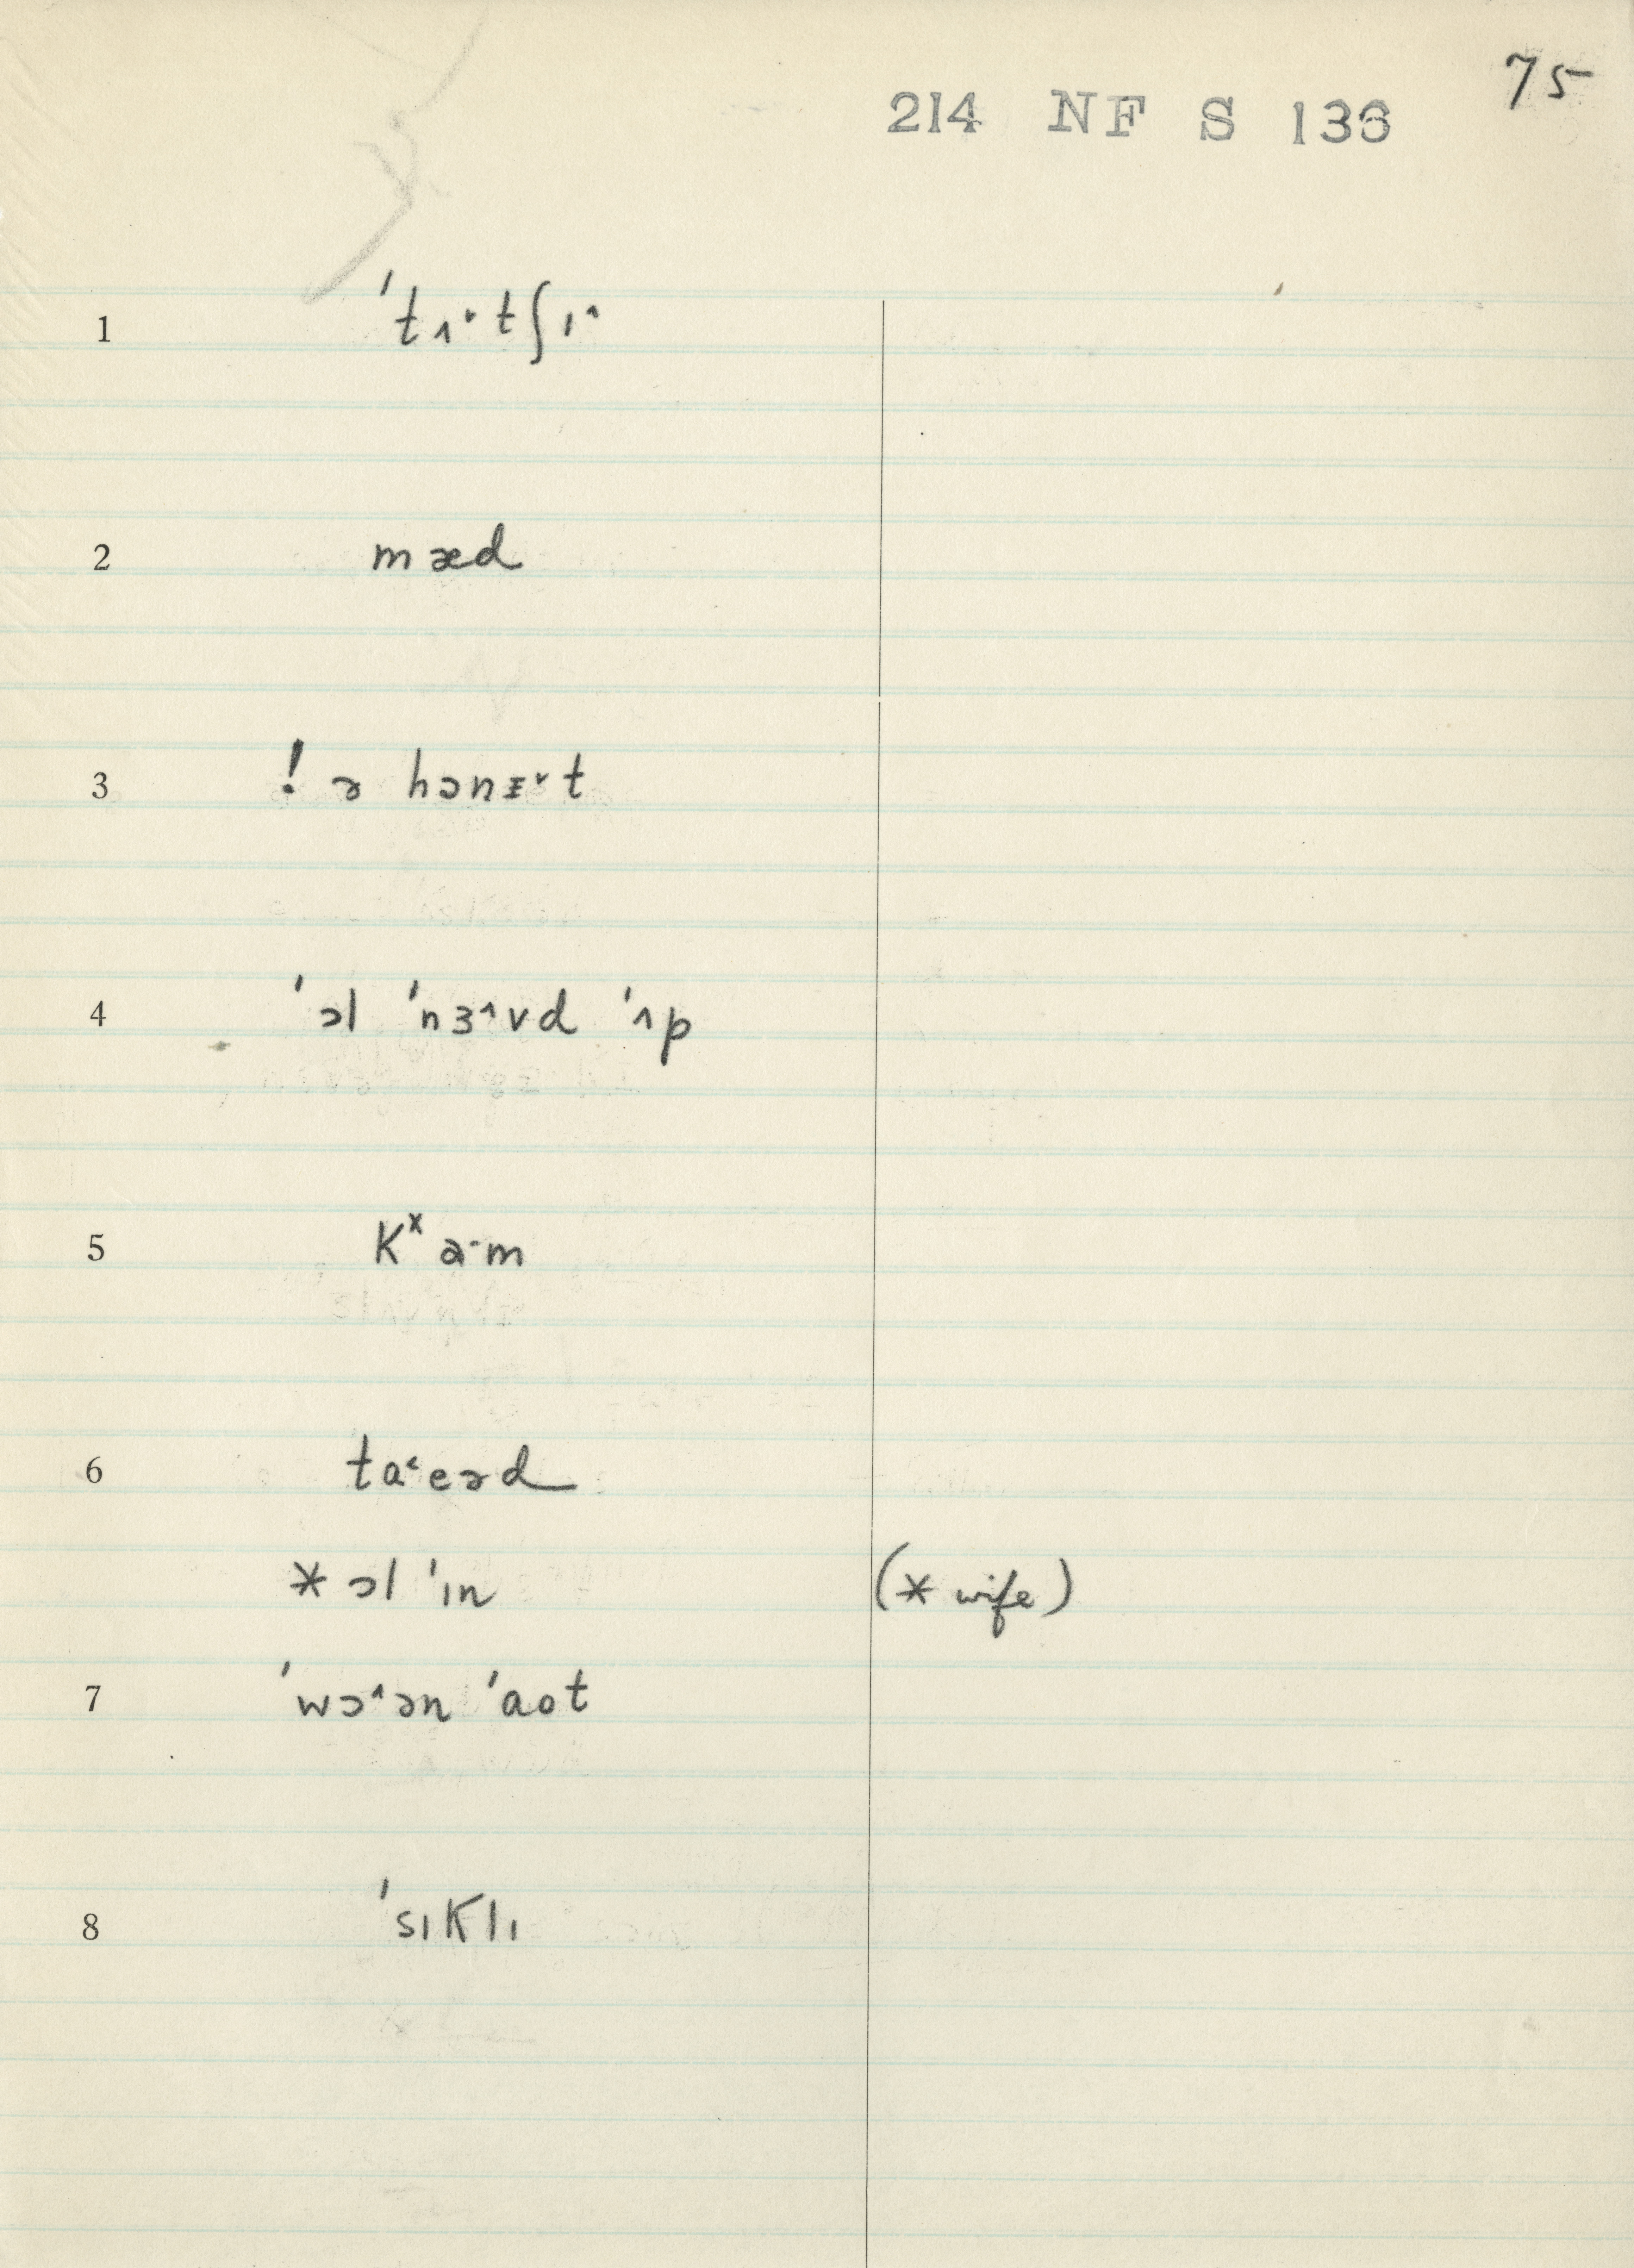 75
214 NF S 136
1 ˈtʌ˅tʃɪ˄
2 mæd
3 ! ə hənᵻ˅t
4 ˈɔl ˈnɜ˄vd ˈʌp
5 kˣa·m
6 ta˂eəd
* ɔl ˈɪn (* wife)
7 ˈwɔ˄ən ˈaot
8 ˈsɪklɪ